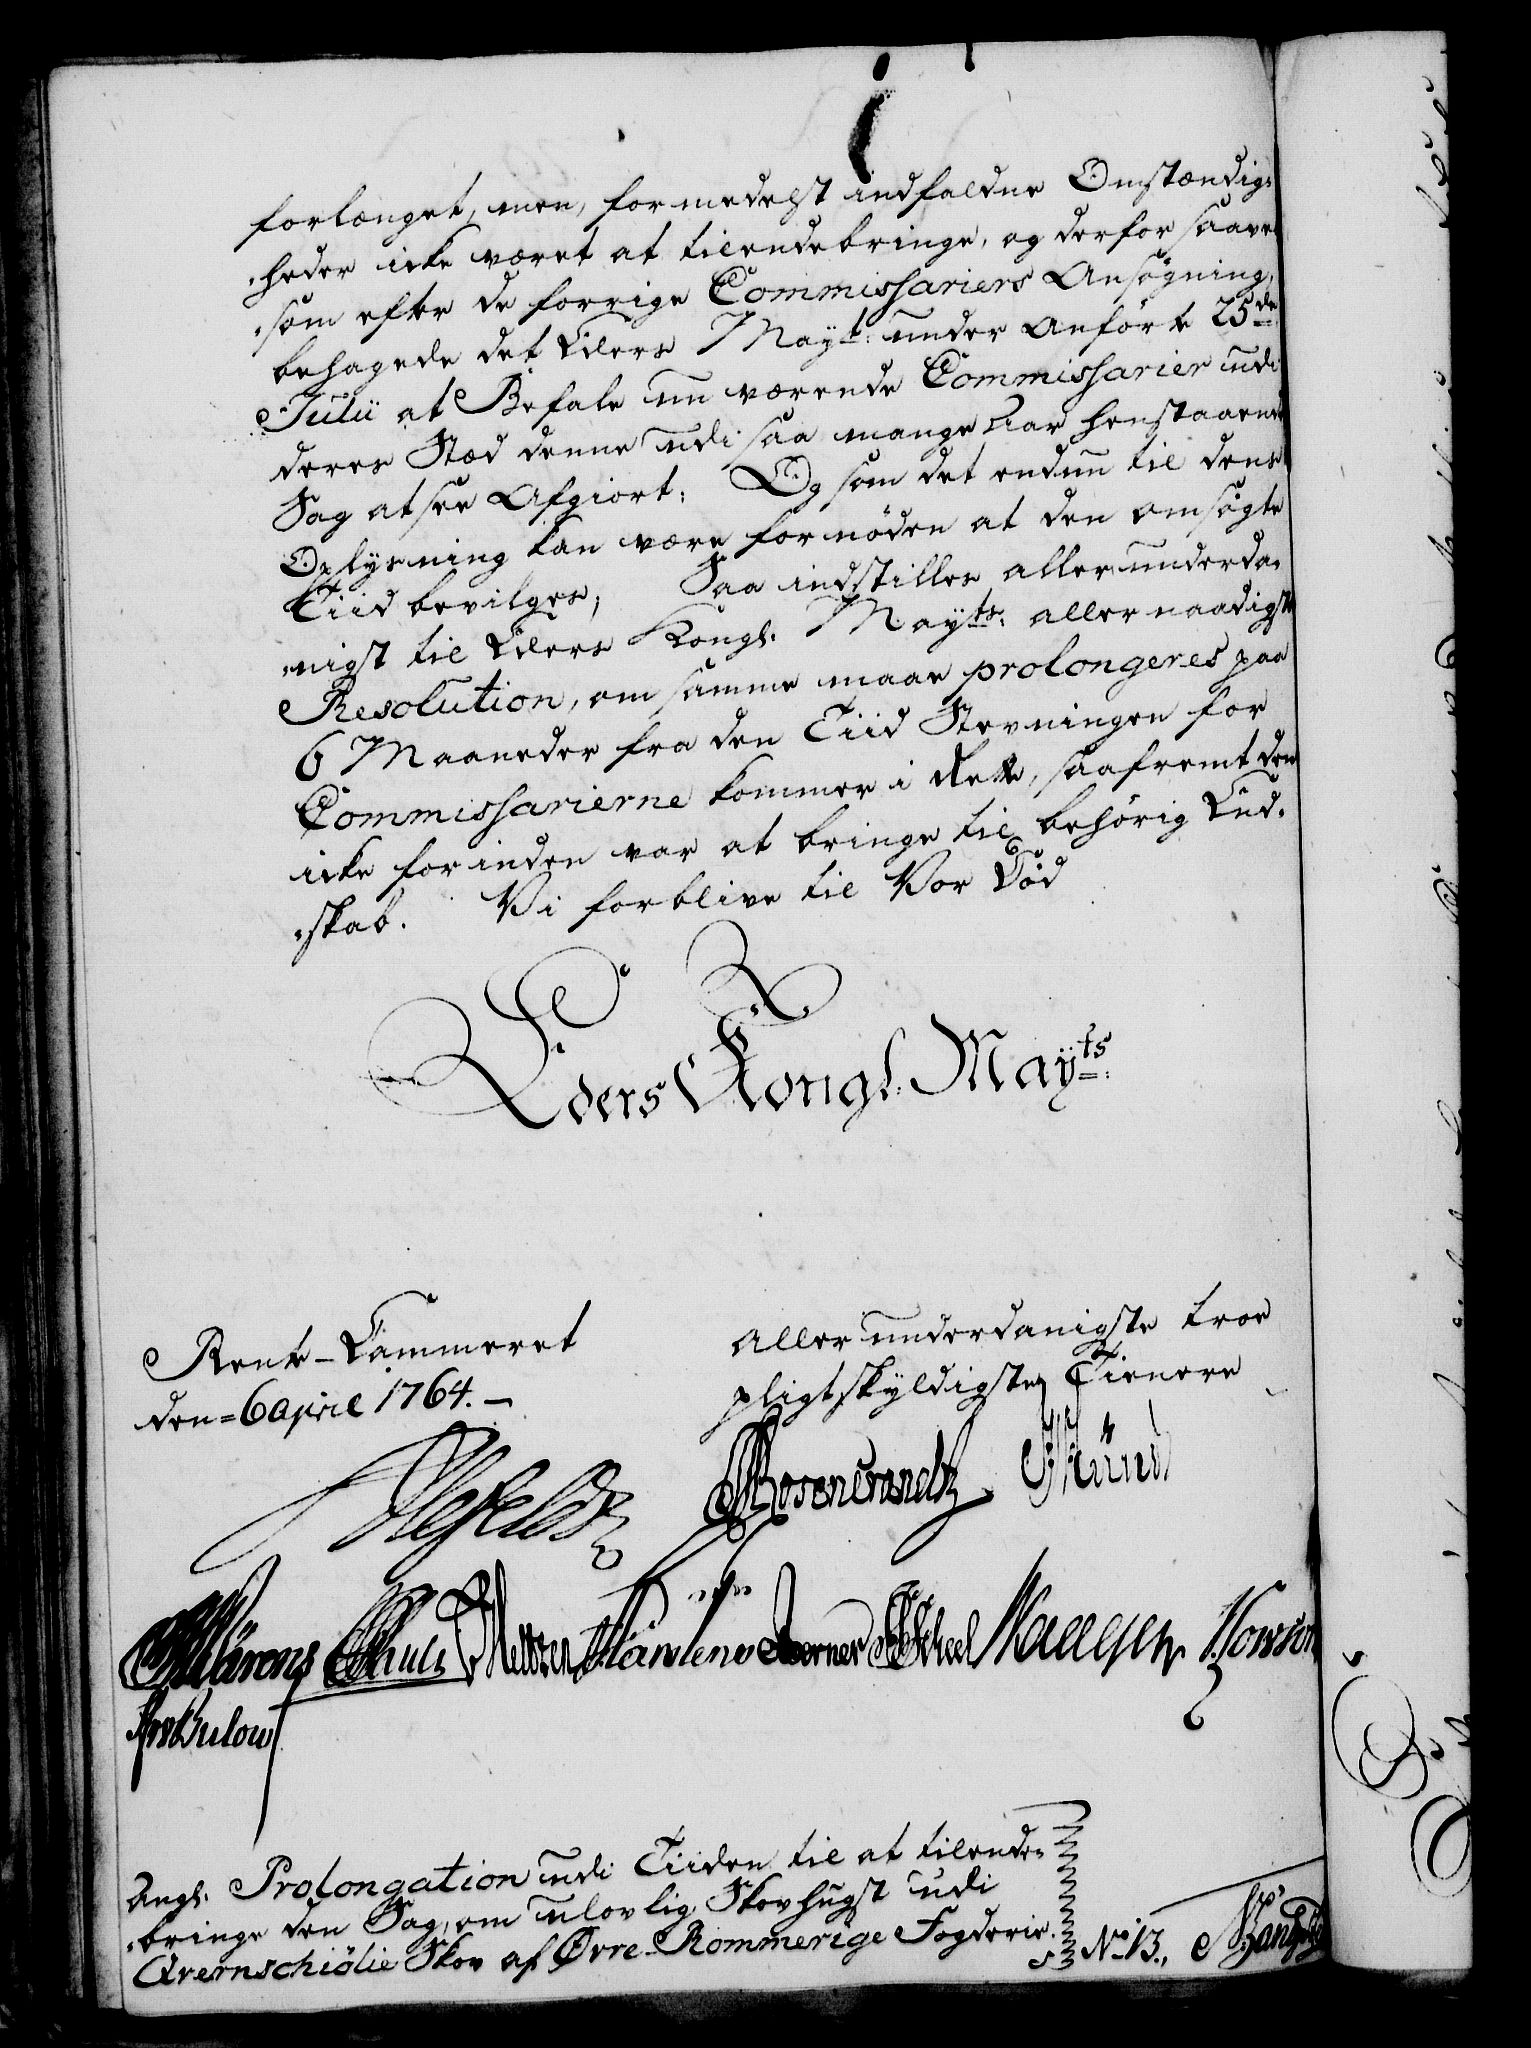 forlænget, men, formedelst indfaldne Omstændig-
-heder icke været at tilendebringe, og derfor saavel
-som efter de forrige Commissariers Ansøgning,
behagede det Eders Mayt: under Anførte 25de
Julii at Befale nu værende Commissarier udi
deres Stæd denne udi saa mange Aar henstaaende
Sag at see Afgiort; Og som det endnu til dens
Oplysning kan være fornøden at den omsøgte
Tiid bevilges; Saa indstilles allerunderda-
-nigst til Eders Kongl. Mayts: allernaadigste
Resolution, om samme maae prolongeres paa
6 Maaneder fra den Tiid Stevningen for
Commissarierne kommer i Rette, saafremt den
icke forinden var at bringe til behörig End-
-skab. Vi forblive til Vor Død
Eders Kongl. Mayts:
Rente-Cammeret
den 6 April 1764.
allerunderdanigste troe
pligtskyldigste Tienere
Ahlefeldt
Rosencrandtz
Mörens Schutz Meltzen Karstens Berner Scheel
Bulow
Angl. Prolongation udi Tiiden til at tilende-
-bringe den Sag, om ulovlig Skovhugst udi
Qvernschiölie Skov af Øvre-Rommerige Fogderie.
No 13.